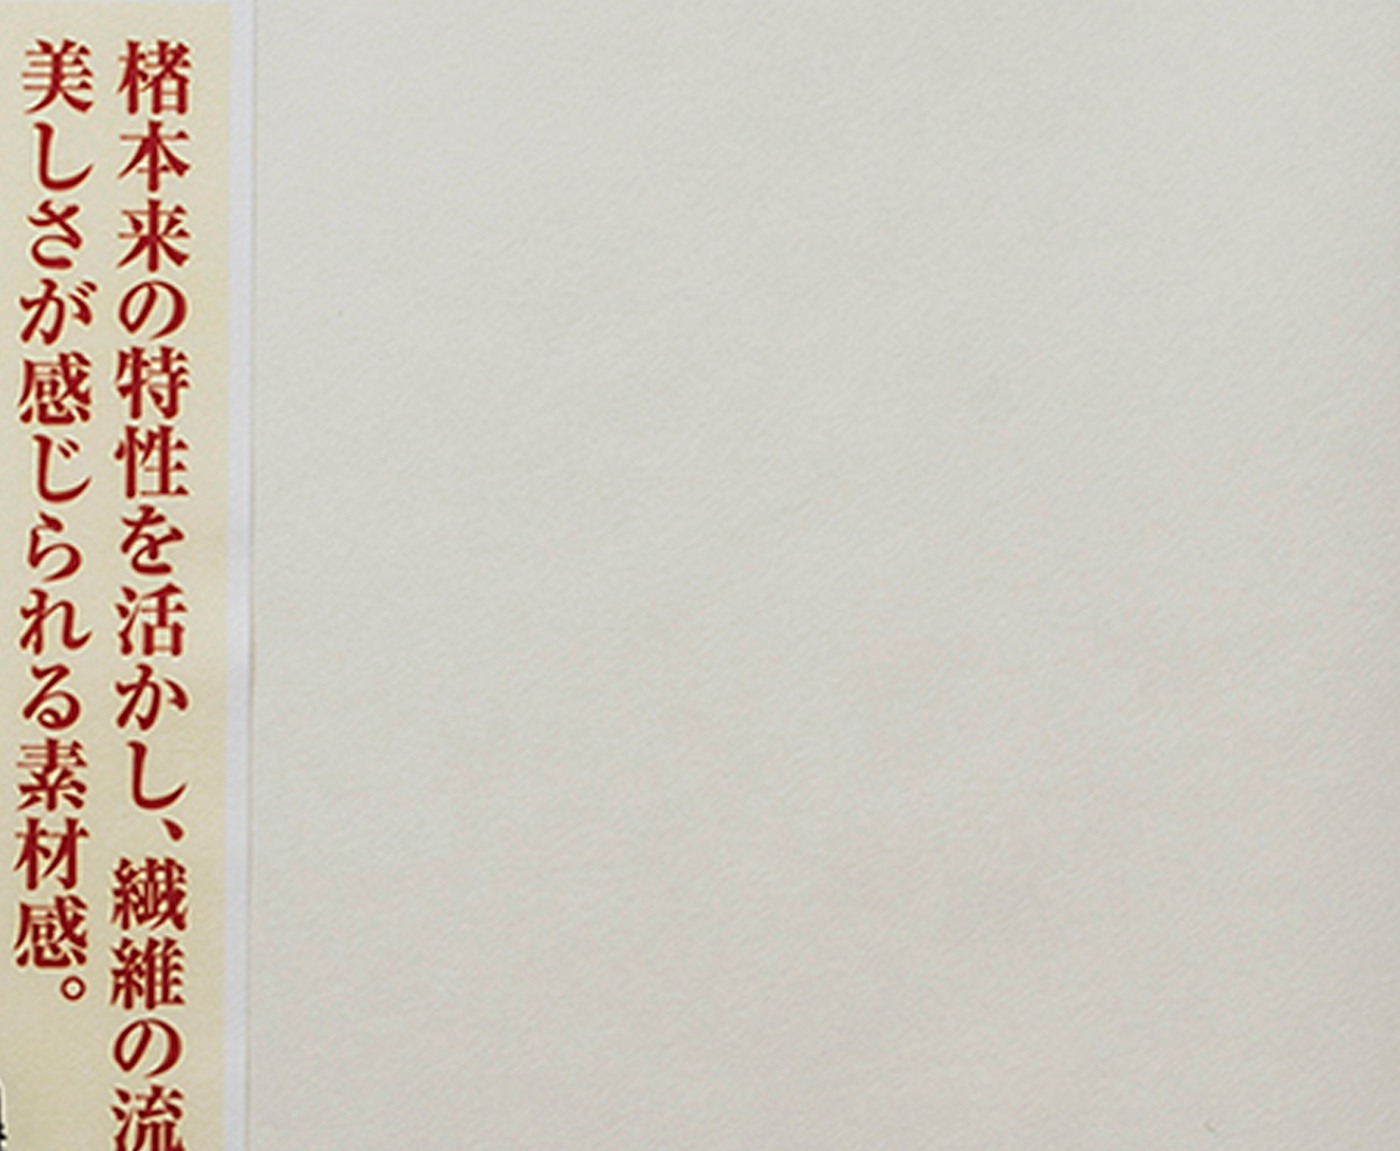 楮本来の特性を活かし、繊維の流
美しさが感じられる素材感。